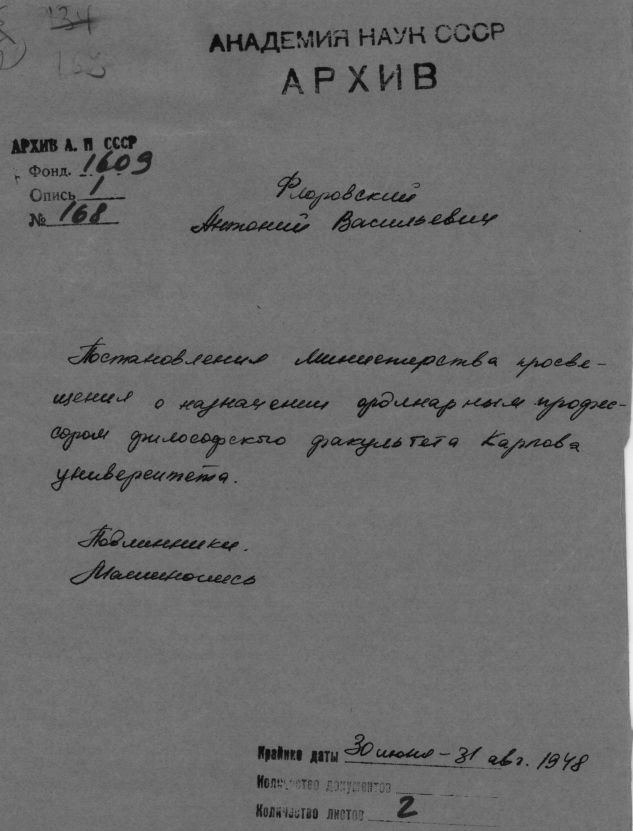 134
АКАДЕМИЯ НАУК СССР
АРХИВ
АРХИВ А. Н СССР
Фонд. 1609
Опись 1
№ 168
Флоровский
Антоний Васильевич
Постановления Министерства просве-
щения о назначении ординарным профес-
сором философского факультета Карлова
университета.
Подлинники.
Машинопись
Крайние даты 30 июня - 31 авг. 1948
Количество документов
Количество листов 2